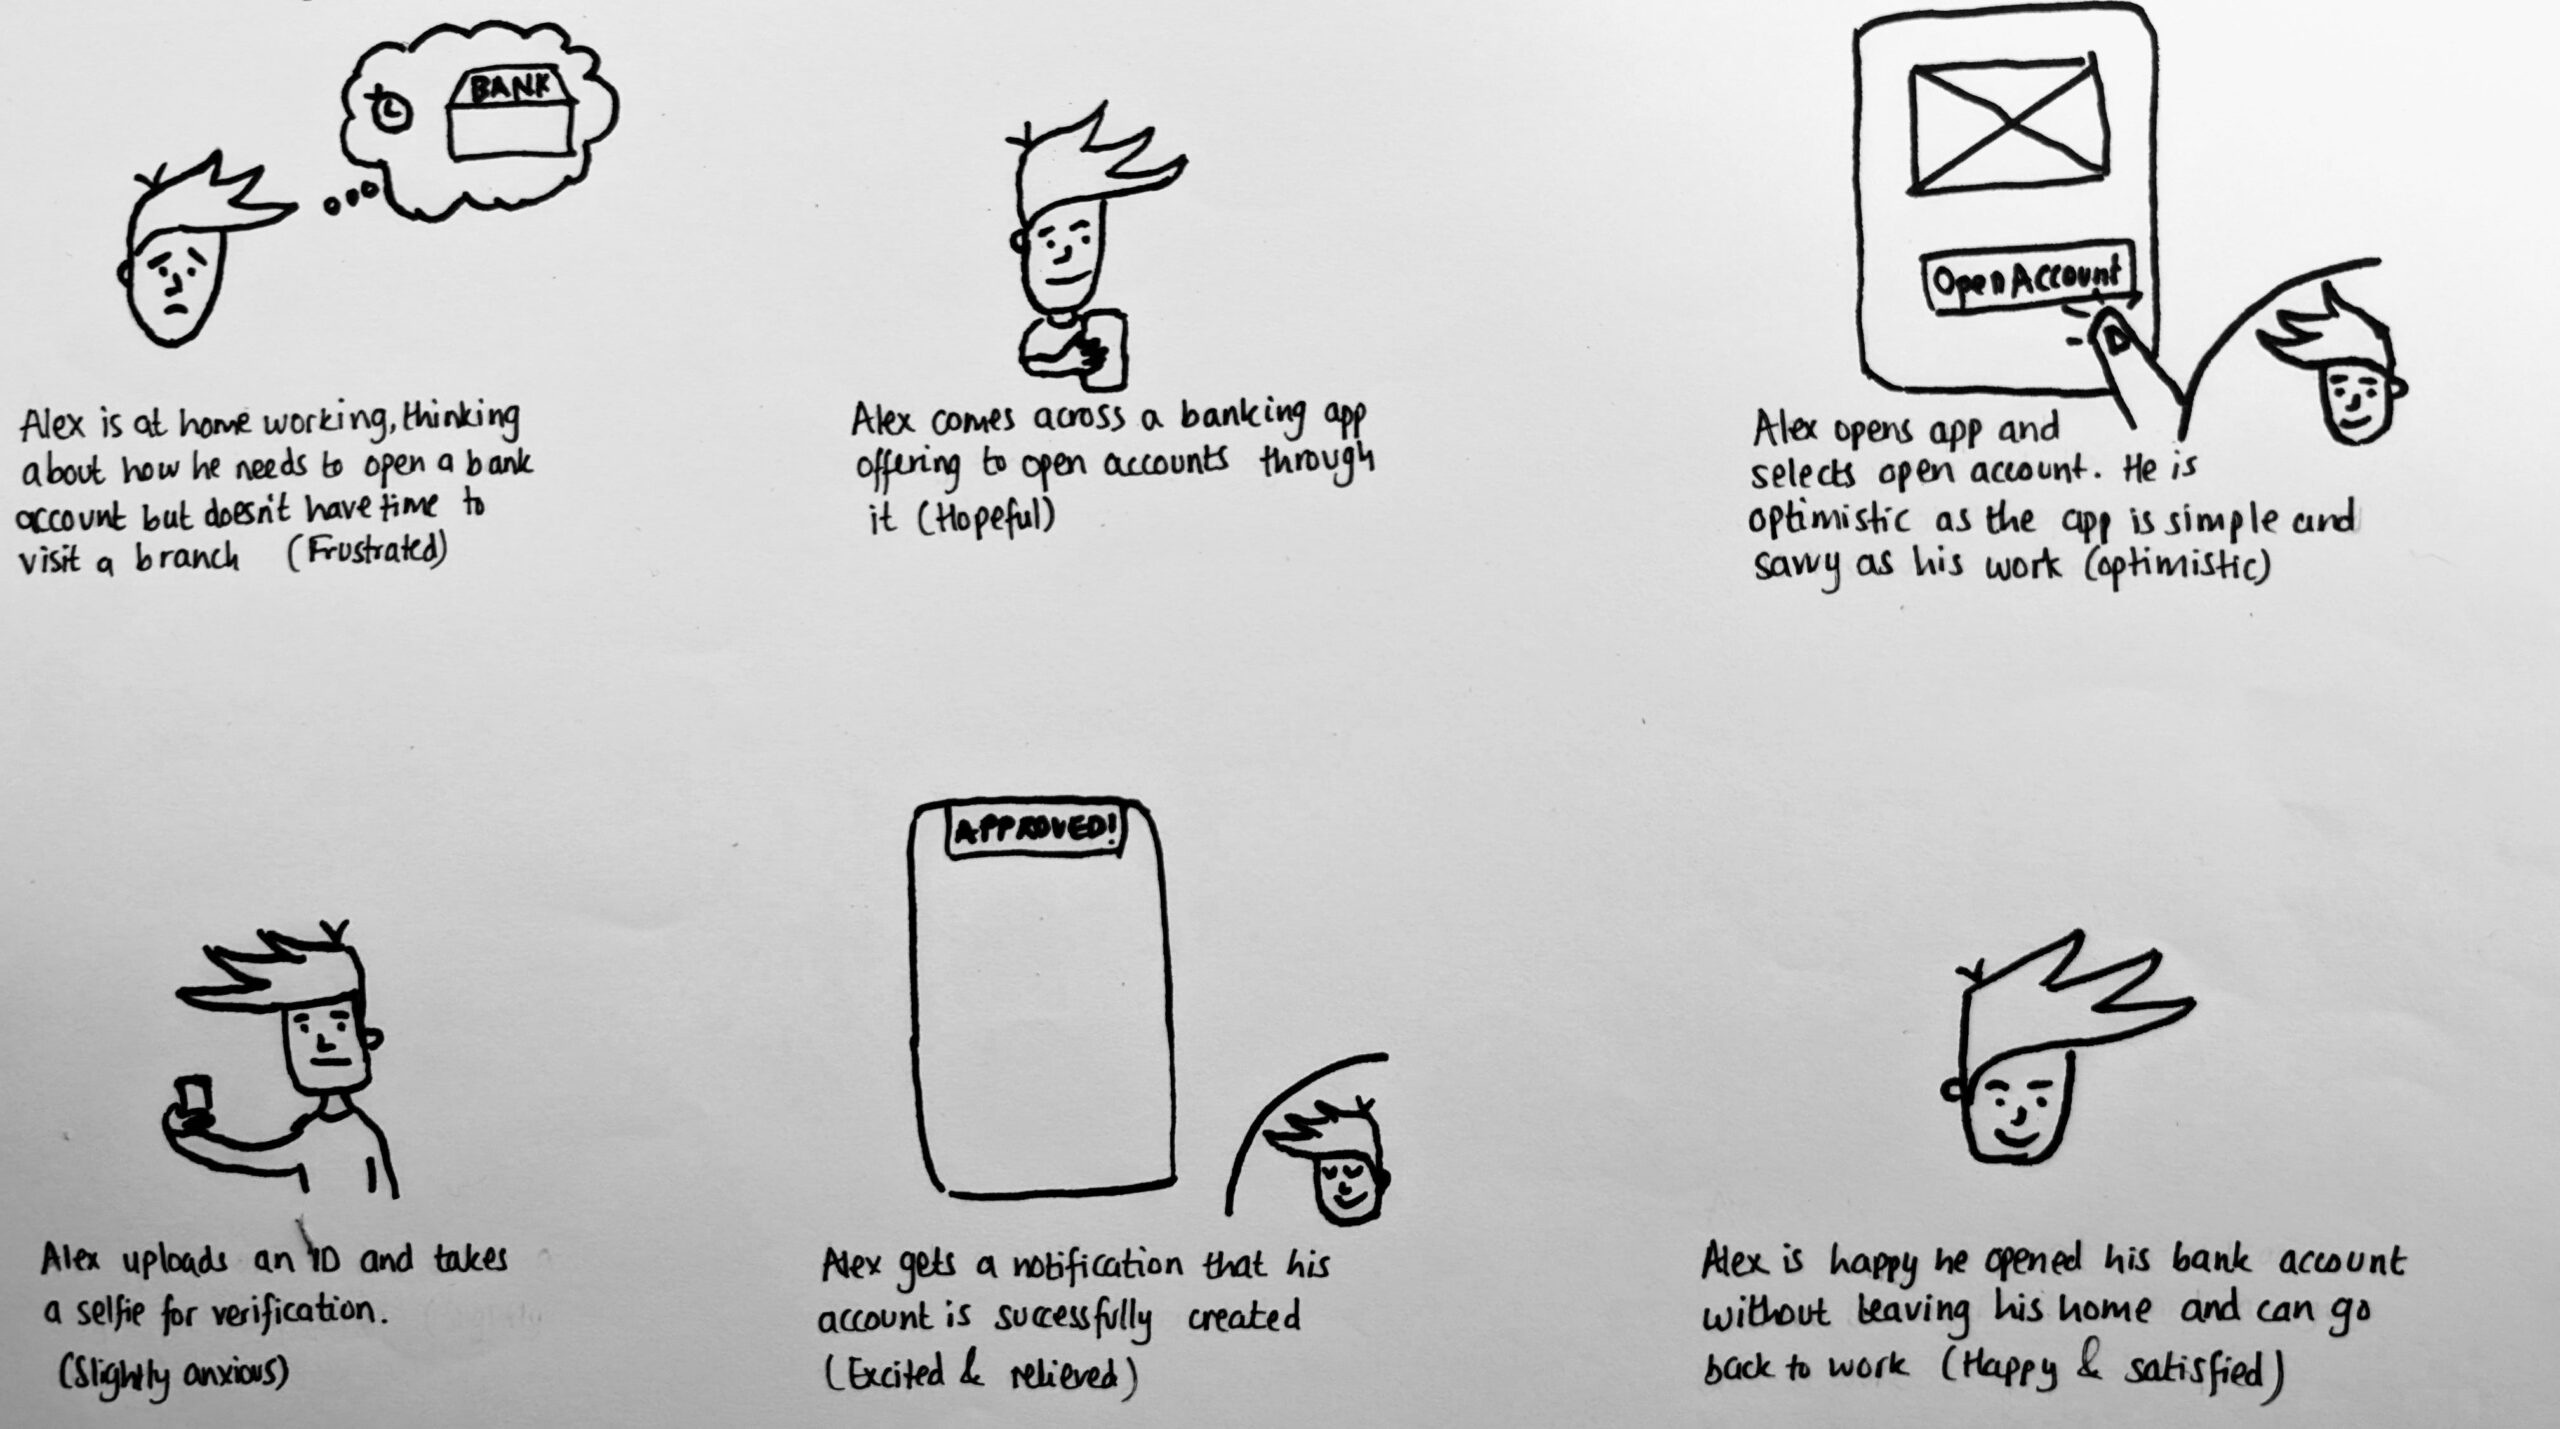 BANK
Alex is at home working, thinking
about how he needs to open a bank
account but doesn't have time to
visit a branch (Frustrated)
Alex comes across a banking app
offering to open accounts through
it (Hopeful)
Open Account
Alex opens app and
selects open account. He is
optimistic as the app is simple and
savvy as his work (optimistic)
Alex uploads an ID and takes
a selfie for verification.
(Slightly anxious)
APPROVED!
Alex gets a notification that his
account is successfully created
(Excited & relieved)
Alex is happy he opened his bank account
without leaving his home and can go
back to work (Happy & satisfied)